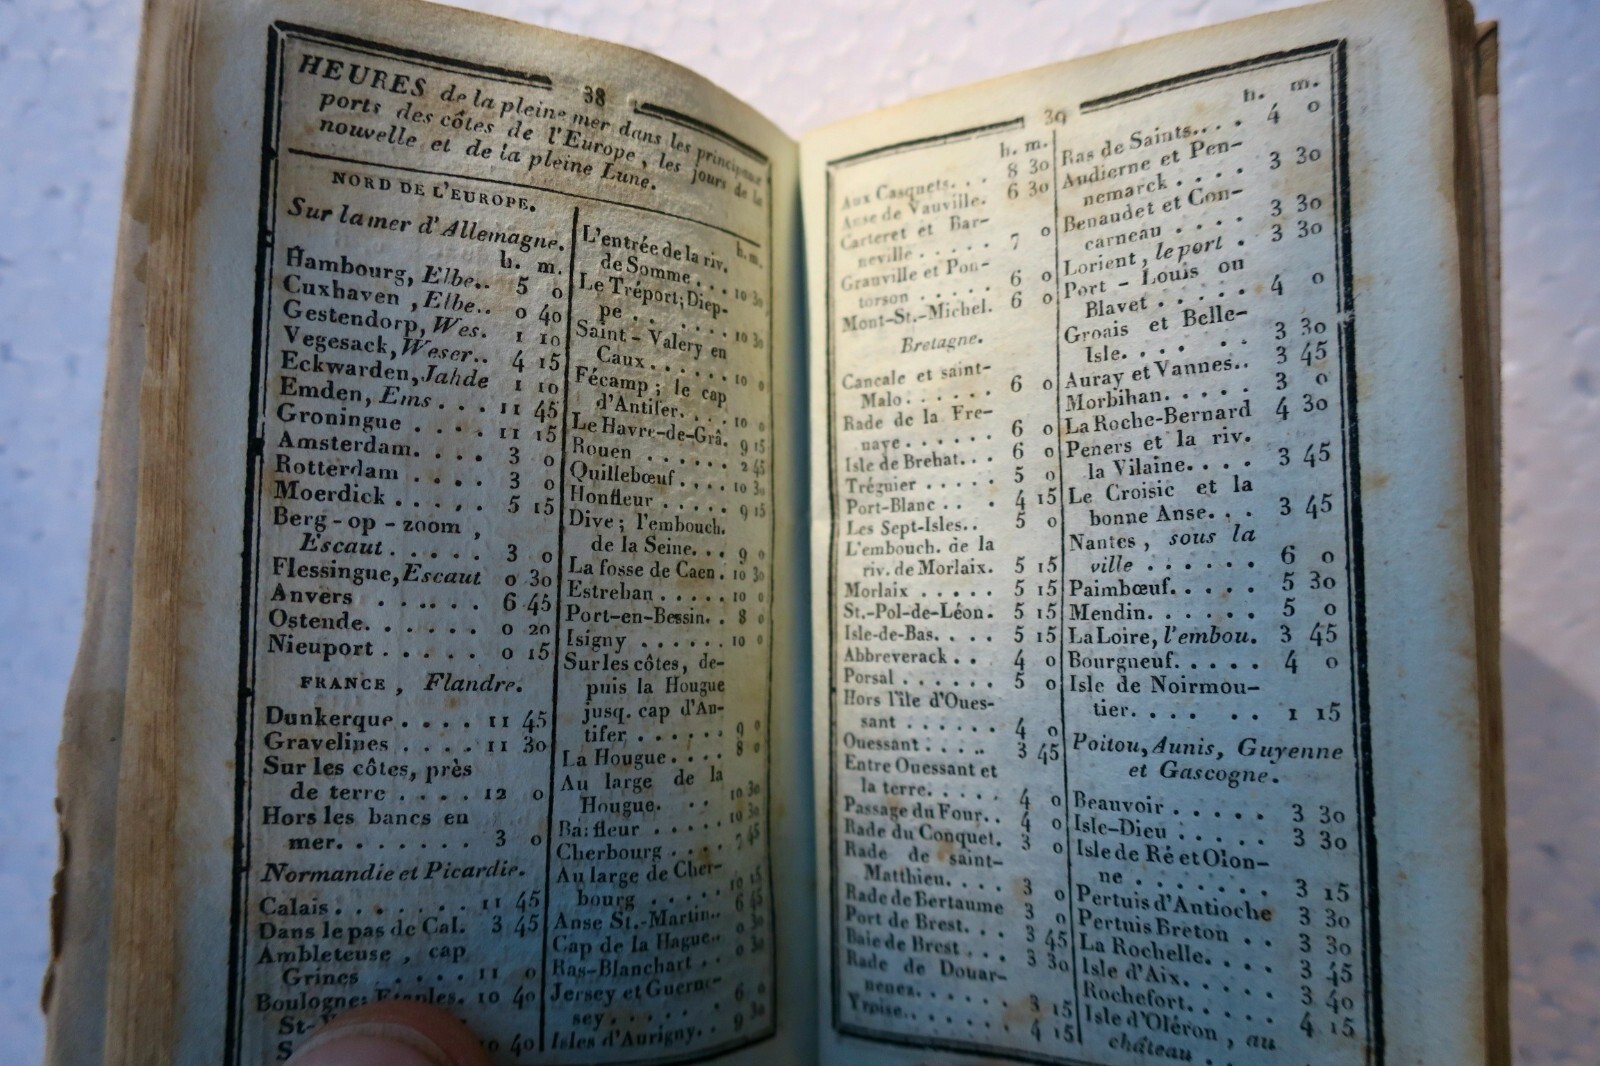 38
HEURES de la pleine mer dans les principaux
ports des côtes de l'Europe, les jours de la
nouvelle et de la pleine Lune.
NORD DE L'EUROPE.
Sur la mer d'Allemagne.
h. m.
Hambourg, Elbe.. 5 0
Cuxhaven, Elbe.. 0 40
Gestendorp, Wes. 1 10
Vegesack, Weser.. 4 15
Eckwarden, Jahde 1 10
Emden, Ems . . . 11 45
Groningue . . . . 11 15
Amsterdam. . . . 3 0
Rotterdam . . . . 3 0
Moerdick . . . . . 5 15
Berg-op-zoom,
Escaut . . . . . 3 0
Flessingue, Escaut 0 30
Anvers . . . . . . 6 45
Ostende. . . . . . 0 20
Nieuport . . . . . 0 15
FRANCE, Flandre.
Dunkerque . . . . 11 45
Gravelines . . . . 11 30
Sur les côtes, près
de terre . . . . 12 0
Hors les bancs en
mer. . . . . . . 3 0
Normandie et Picardie.
Calais . . . . . . . 11 45
Dans le pas de Cal. 3 45
Ambleteuse, cap
Grines . . . . . 11 0
Boulogne; Etaples. 10 40
St-
S 10 40
h. m.
L'entrée de la riv.
de Somme . . . 10 30
Le Tréport; Diep-
pe . . . . . . 10 30
Saint-Valery en
Caux. . . . . . . 10 0
Fécamp; le cap
d'Antifer. . . . 10 0
Le Havre-de-Grâ. 9 15
Rouen . . . . . . 2 45
Quillebœuf . . . . 10 30
Honfleur . . . . . 9 15
Dive; l'embouch.
de la Seine. . . 9 0
La fosse de Caen . 10 30
Estrehan . . . . . 10 0
Port-en-Bessin. . 8 0
Isigny . . . . . . 10 0
Sur les côtes, de-
puis la Hougue
jusq. cap d'An-
tifer . . . . . . 9 0
La Hougue . . . . 8 0
Au large de la
Hougue. . . 10 30
Barfleur . . . . . 10 30
Cherbourg . . . . 7 45
Au large de Cher-
bourg . . . . . 10 15
Anse St.-Martin.. 6 45
Cap de la Hague.. 0 30
Ras-Blanchart . . 0 30
Jersey et Guerne-
sey . . . . . . 6 0
Isles d'Aurigny. . 9 30
39
h. m.
Aux Casquets. . . 8 30
Anse de Vauville. 6 30
Carteret et Bar-
neville . . . . . 7 0
Granville et Pon-
torson . . . . . 6 0
Mont-St.-Michel. 6 0
Bretagne.
Cancale et saint-
Malo . . . . . . 6 0
Rade de la Fre-
naye . . . . . . 6 0
Isle de Brehat. . . 6 0
Tréguier . . . . . 5 0
Port-Blanc . . . 4 15
Les Sept-Isles. . 5 0
L'embouch. de la
riv. de Morlaix. 5 15
Morlaix . . . . . 5 15
St.-Pol-de-Léon. 5 15
Isle-de-Bas. . . . 5 15
Abbreverack . . 4 0
Porsal . . . . . . 5 0
Hors l'île d'Oues-
sant . . . . . . 4 0
Ouessant . . . . 3 45
Entre Ouessant et
la terre. . . . . 4 0
Passage du Four. . 4 0
Rade du Conquet. 3 0
Rade de saint-
Matthieu. . . . 3 0
Rade de Bertaume 3 0
Port de Brest. . . 3 45
Baie de Brest . . . 3 30
Rade de Douar-
nenez. . . . . . 3 15
Yroise. . . . . . . 4 15
h. m.
Ras de Saints. . . . 4 0
Audierne et Pen-
nemarck . . . . 3 30
Benaudet et Con-
carneau . . . . 3 30
Lorient, le port . 3 30
Port-Louis ou
Blavet . . . . . 4 0
Groais et Belle-
Isle. . . . . . . 3 30
Auray et Vannes. . 3 45
Morbihan. . . . . 3 0
La Roche-Bernard 4 30
Peners et la riv.
la Vilaine. . . . 3 45
Le Croisic et la
bonne Anse. . . 3 45
Nantes, sous la
ville . . . . . . 6 0
Paimbœuf. . . . . 5 30
Mendin. . . . . . 5 0
La Loire, l'embou. 3 45
Bourgneuf. . . . . 4 0
Isle de Noirmou-
tier. . . . . . 1 15
Poitou, Aunis, Guyenne
et Gascogne.
Beauvoir . . . . . 3 30
Isle-Dieu . . . . . 3 30
Isle de Ré et Olon-
ne . . . . . . . 3 15
Pertuis d'Antioche 3 30
Pertuis Breton . . 3 30
La Rochelle. . . . 3 45
Isle d'Aix. . . . . 3 40
Rochefort. . . . . 4 15
Isle d'Oléron, au
château . .